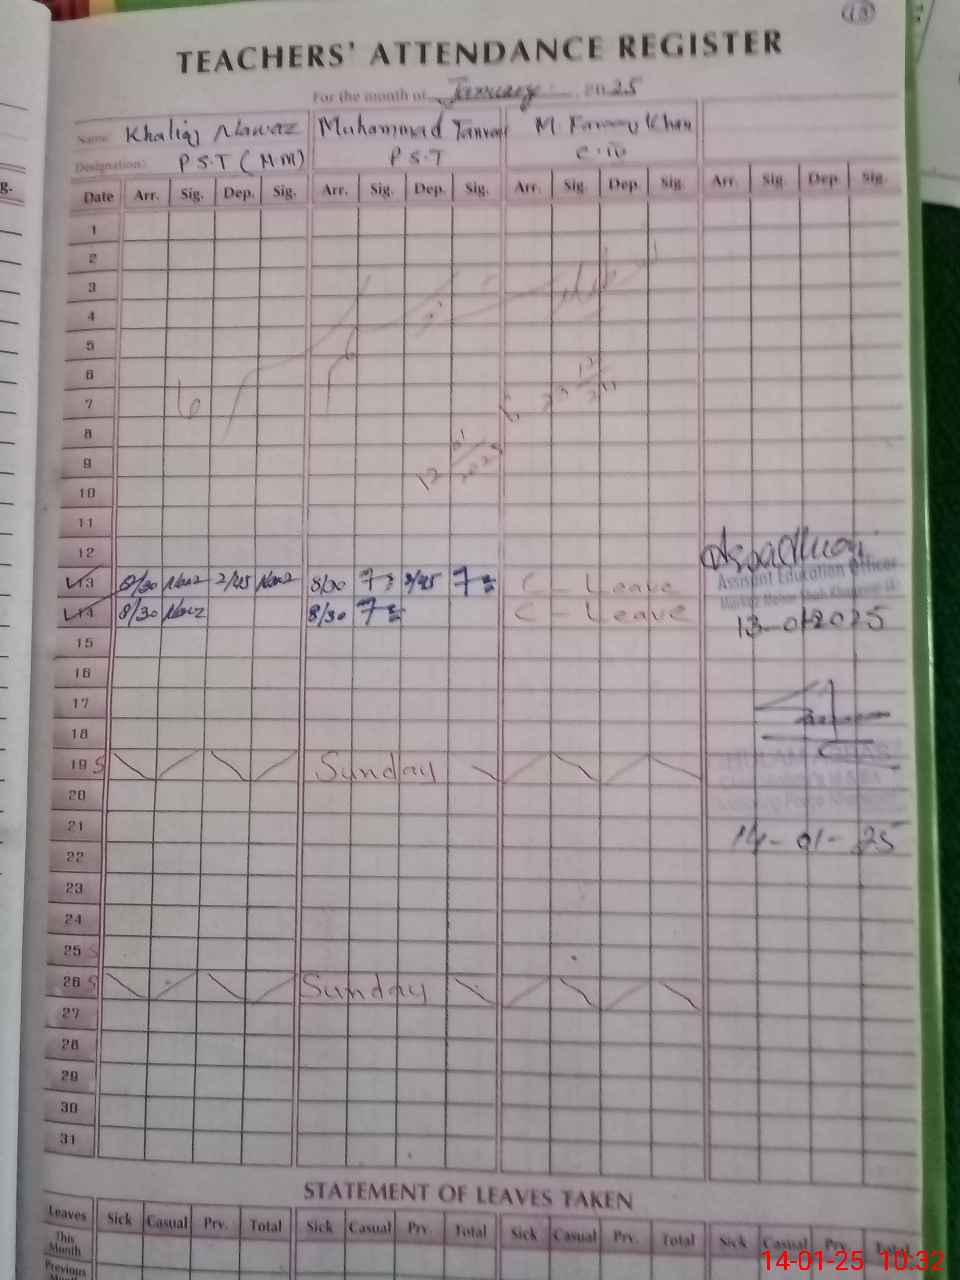 13
TEACHERS' ATTENDANCE REGISTER
For the month of January 2025
Name: Khaliq Nawaz Muhammad Tanveer M. Farooq Khan
Designation: P.S.T (H.M) P S.T C.IV
Date Arr. Sig. Dep. Sig. Arr. Sig. Dep. Sig. Arr. Sig. Dep. Sig. Arr. Sig. Dep. Sig.
1
2
3
4
5
6
7
8
9
12 01 2025
10
11
12
13 8/30 Nawz 2/45 Nawz 8/30 2/45 C Leave
Assistant Education Officer
14 8/30 Nawz 8/30 C Leave
13-01-2025
15
16
17
18
19 S Sunday
20
21
14-01-25
22
23
24
25 S
26 S Sunday
27
28
29
30
31
STATEMENT OF LEAVES TAKEN
Leaves Sick Casual Prv. Total Sick Casual Prv. Total Sick Casual Prv. Total Sick Casual Prv. Total
This Month
Previous
14-01-25 10:32